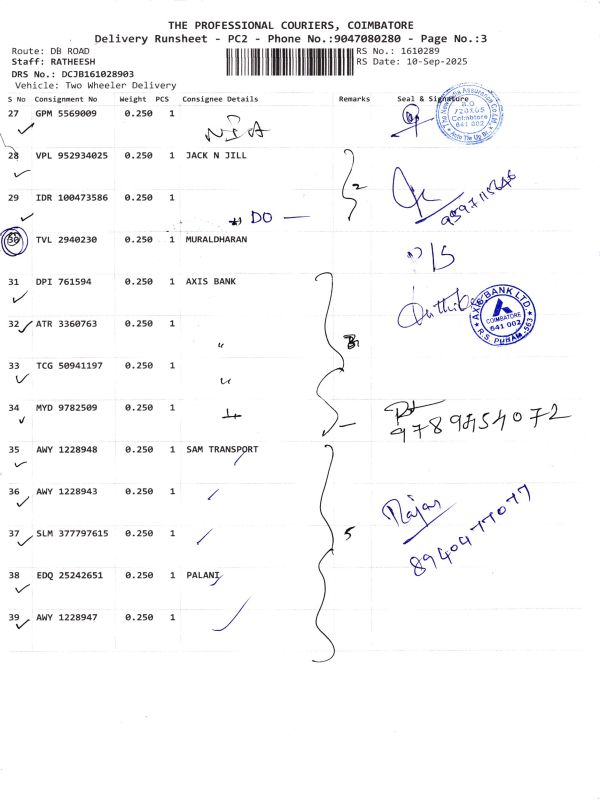 THE PROFESSIONAL COURIERS, COIMBATORE
Delivery Runsheet - PC2 - Phone No.:9047080280 - Page No.:3
Route: DB ROAD
Staff: RATHEESH
DRS No.: DCJB161028903
Vehicle: Two Wheeler Delivery
RS No.: 1610289
RS Date: 10-Sep-2025
S No Consignment No Weight PCS Consignee Details Remarks Seal & Signature
27 GPM 5569009 0.250 1
NIA
28 VPL 952934025 0.250 1 JACK N JILL
2
29 IDR 100473586 0.250 1
DO
30 TVL 2940230 0.250 1 MURALDHARAN
31 DPI 761594 0.250 1 AXIS BANK
AXIS BANK LTD.
COIMBATORE
641 002
32 ATR 3360763 0.250 1 "
33 TCG 50941197 0.250 1 "
34 MYD 9782509 0.250 1
9789454072
35 AWY 1228948 0.250 1 SAM TRANSPORT
36 AWY 1228943 0.250 1
Rajan
37 SLM 377797615 0.250 1 5
8940477077
38 EDQ 25242651 0.250 1 PALANI
39 AWY 1228947 0.250 1